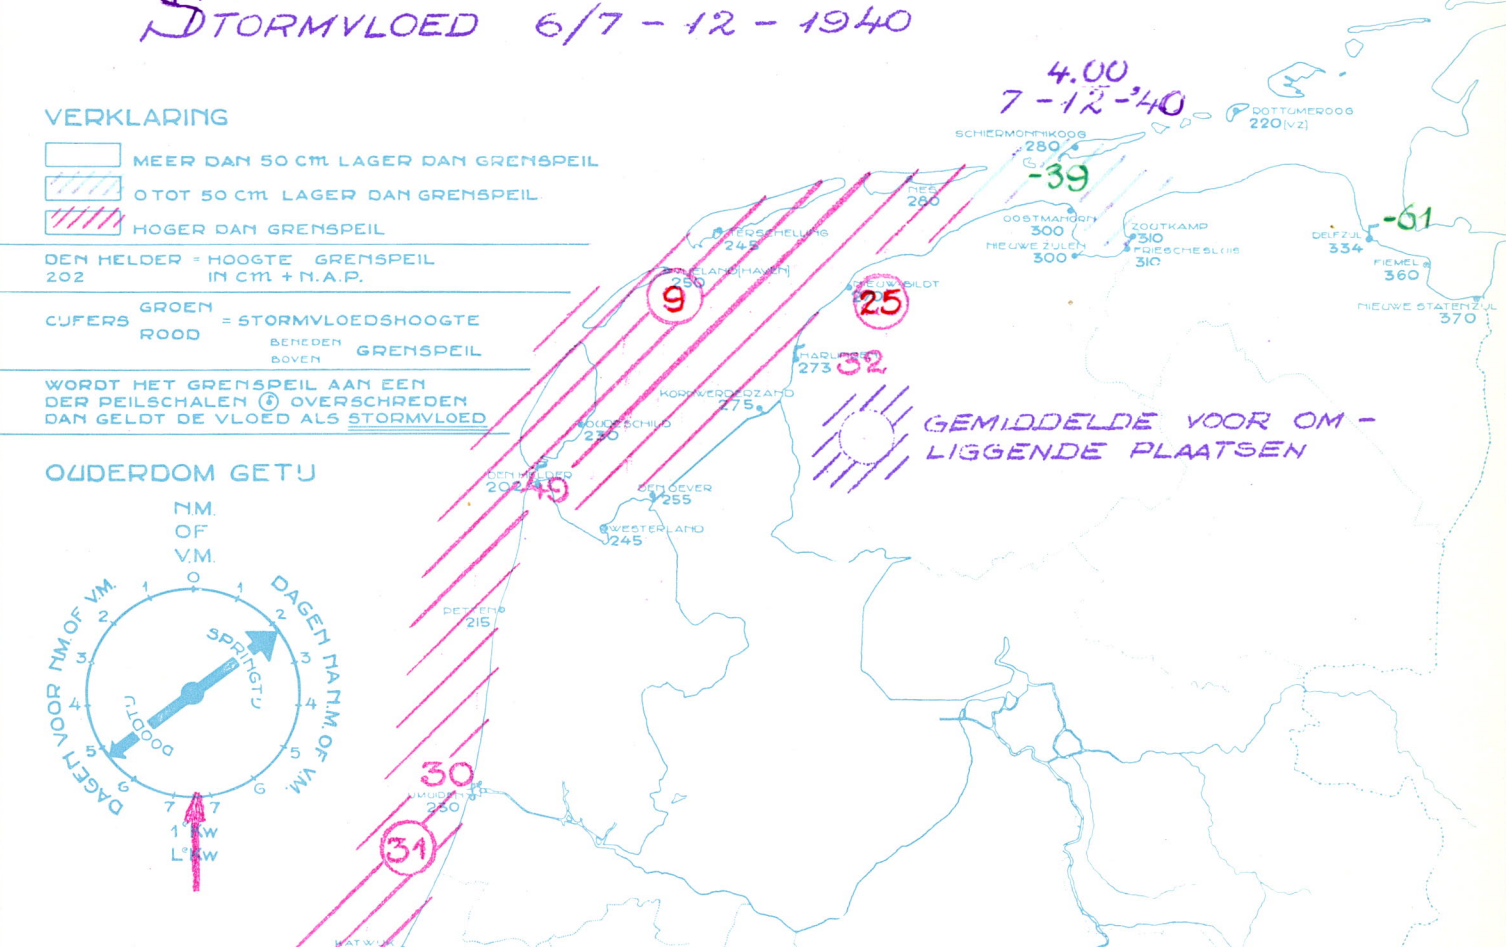 STORMVLOED 6/7 - 12 - 1940
4.00
7 - 12 - '40
VERKLARING
MEER DAN 50 cm LAGER DAN GRENSPEIL
0 TOT 50 cm LAGER DAN GRENSPEIL
HOGER DAN GRENSPEIL
DEN HELDER = HOOGTE GRENSPEIL
202 IN cm + N.A.P.
CIJFERS GROEN ROOD = STORMVLOEDSHOOGTE
BENEDEN BOVEN GRENSPEIL
WORDT HET GRENSPEIL AAN EEN
DER PEILSCHALEN OVERSCHREDEN
DAN GELDT DE VLOED ALS STORMVLOED
OUDERDOM GETIJ
N.M.
OF
V.M.
0
1 1
2 2
3 3
4 4
5 5
6 6
7 7
DAGEN VOOR N.M. OF V.M.
DAGEN NA N.M. OF V.M.
SPRINGTIJ
DOODTIJ
1e KW
Le KW
ROTTUMEROOG
220 (VZ)
SCHIERMONNIKOOG
280
-39
NES
280
OOSTMAHORN
300
NIEUWE ZIJLEN
300
ZOUTKAMP
310
FRIESCHESLUIS
310
-61
DELFZIJL
334
FIEMEL
360
NIEUWE STATENZIJL
370
TERSCHELLING
245
VLIELAND (HAVEN)
250
9
NIEUW BILDT
25
HARLINGEN
273
32
KORNWERDERZAND
275
GEMIDDELDE VOOR OM -
LIGGENDE PLAATSEN
OUDESCHILD
230
DEN HELDER
202
49
DEN OEVER
255
WESTERLAND
245
PETTEN
215
30
IJMUIDEN
230
31
KATWIJK